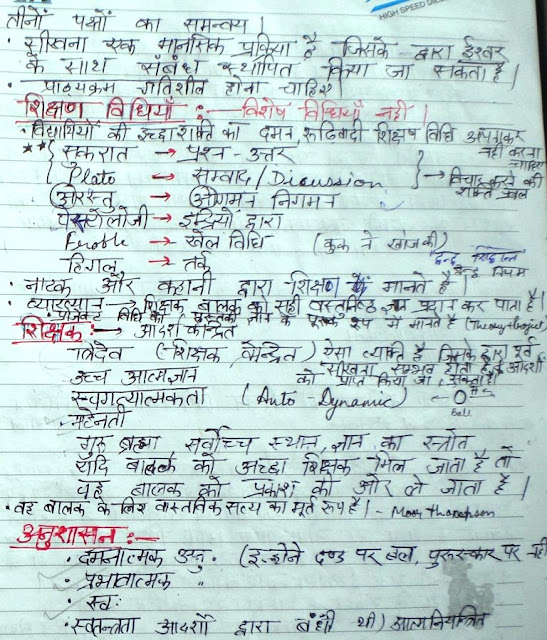 HIGH SPEED
तीनों पक्षों का समन्वय।
• सीखना एक मानसिक प्रक्रिया है जिसके द्वारा ईश्वर
के साथ संबंध स्थापित किया जा सकता है।
• पाठ्यक्रम गतिशील होना चाहिए।
शिक्षण विधियाँ :- विशेष विधियाँ नहीं।
• विद्यार्थियों की इच्छाशक्ति का दमन, रूढ़िवादी शिक्षण विधि अपनाकर नहीं करना चाहिए
** सुकरात → प्रश्न-उत्तर
Plato → सम्वाद/Dicussion } विचार करने की शक्ति प्रबल
अरस्तु → आगमन निगमन
पेस्टोलॉजी → इन्द्रियों द्वारा
Froble → खेल विधि (कुक ने खोज की)
हिगल → तर्क द्वन्द सिद्धान्त
• नाटक और कहानी द्वारा शिक्षण मानते है।
• व्याख्यान → शिक्षक बालक को सही वस्तुनिष्ठ ज्ञान प्रदान कर पाता है।
• प्रोजेक्ट विधि को पुस्तकी ज्ञान के पूरक रूप में मानते है (Theory+Project)
शिक्षक:- → आदर्श केन्द्रित
(शिक्षक केन्द्रित) ऐसा व्यक्ति है जिसके द्वारा पूर्व
उच्च आत्मज्ञान
को प्राप्त किया जा सकता है।
स्वगत्यात्मकता (Auto-Dynamic) ball
• मेहनती
गुरु ब्रह्मा सर्वोच्च स्थान, ज्ञान का स्त्रोत
यदि बालक को अच्छा शिक्षक मिल जाता है तो
वह बालक को प्रकाश की ओर ले जाता है।
• वह बालक के लिए वास्तविक सत्य का मूर्त रूप है।
अनुशासन:-
• दमनात्मक अनु. (इन्होंने दण्ड पर बल, पुरूस्कार पर नहीं
• प्रभावात्मक "
• स्व:
• स्वतन्त्रता आदर्शों द्वारा बंधी थी) आत्मनियन्त्रित